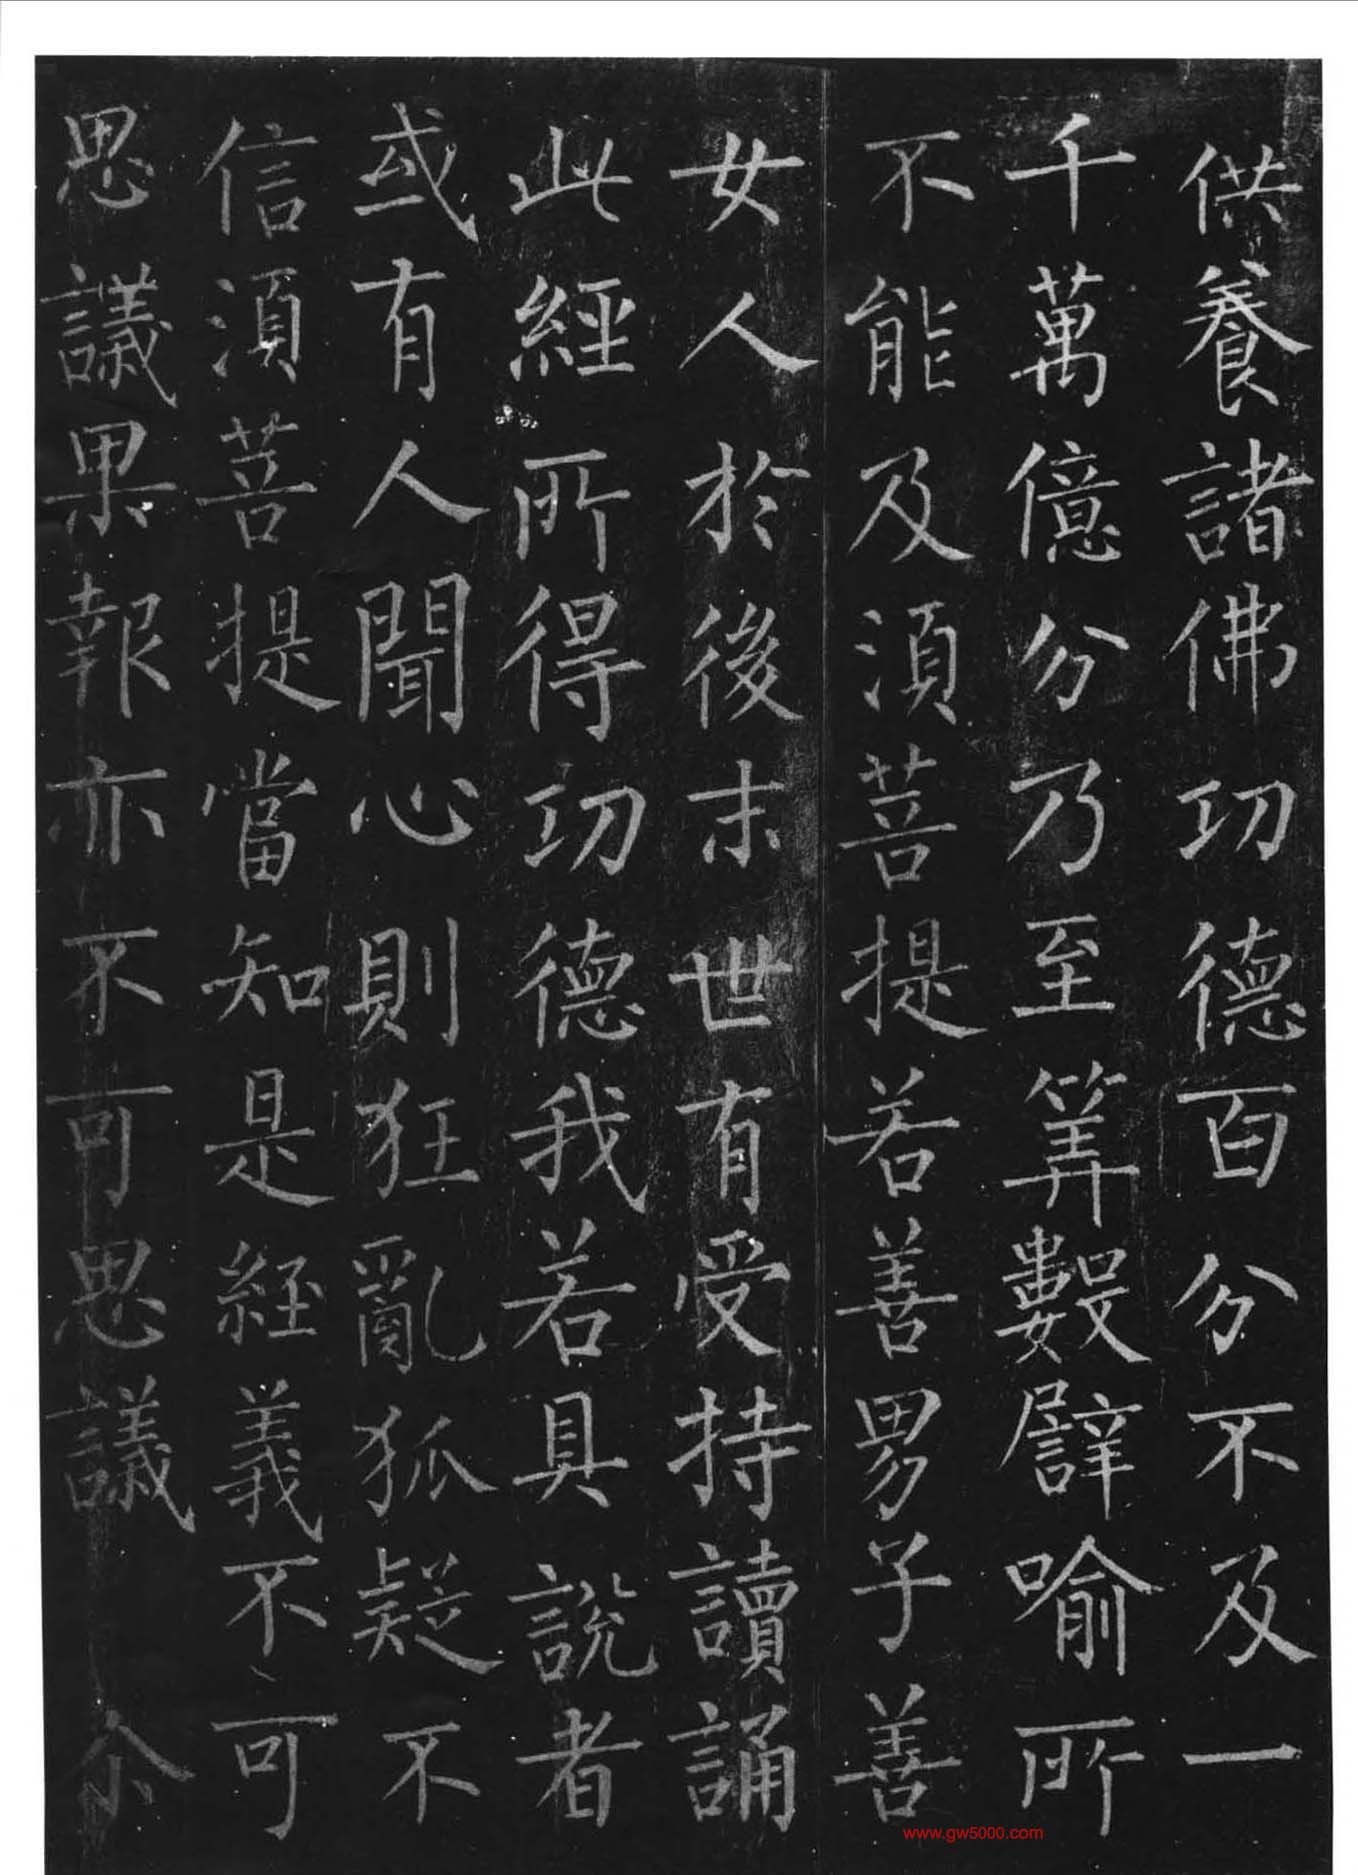 供養諸佛功德百分不及一
千萬億分乃至筭數譬喻所
不能及須菩提若善男子善
女人於後末世有受持讀誦
此經所得功德我若具說者
或有人聞心則狂亂狐疑不
信須菩提當知是經義不可
思議果報亦不可思議 尒
www.gw5000.com